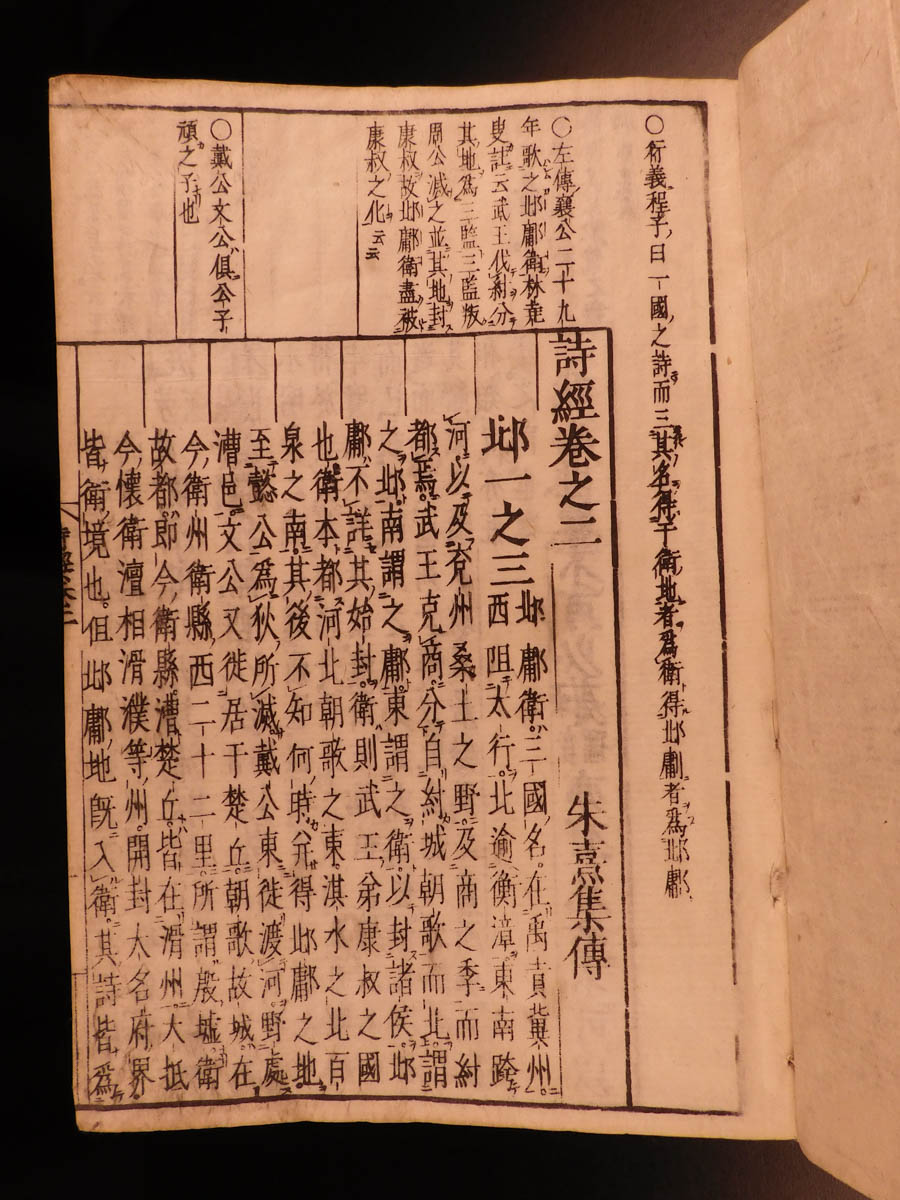 〇衍義程子曰一國之詩而三其名得于衛地者爲衛得邶鄘者爲邶鄘
〇左傳襄公二十九
年歌之邶鄘衛林堯
叟註云武王伐紂分
其地爲三監三監叛
周公滅之並其地封
康叔故邶鄘衛盡被
康叔之化云云
〇戴公文公俱公子
頑之子也
詩經卷之二
朱熹集傳
邶一之三
邶鄘衛三國名在禹貢冀州
西阻太行北逾衡漳東南跨
河以及兗州桑土之野及商之季而紂
都焉武王克商分自紂城朝歌而北謂
之邶南謂之鄘東謂之衛以封諸侯邶
鄘不詳其始封衛則武王弟康叔之國
也衛本都河北朝歌之東淇水之北百
泉之南其後不知何時并得邶鄘之地
至懿公爲狄所滅戴公東徙渡河野處
漕邑文公又徙居于楚丘朝歌故城在
今衛州衛縣西二十二里所謂殷墟衛
故都即今衛縣漕楚丘皆在滑州大抵
今懷衛澶相滑濮等州開封大名府界
皆衛境也但邶鄘地既入衛其詩皆爲